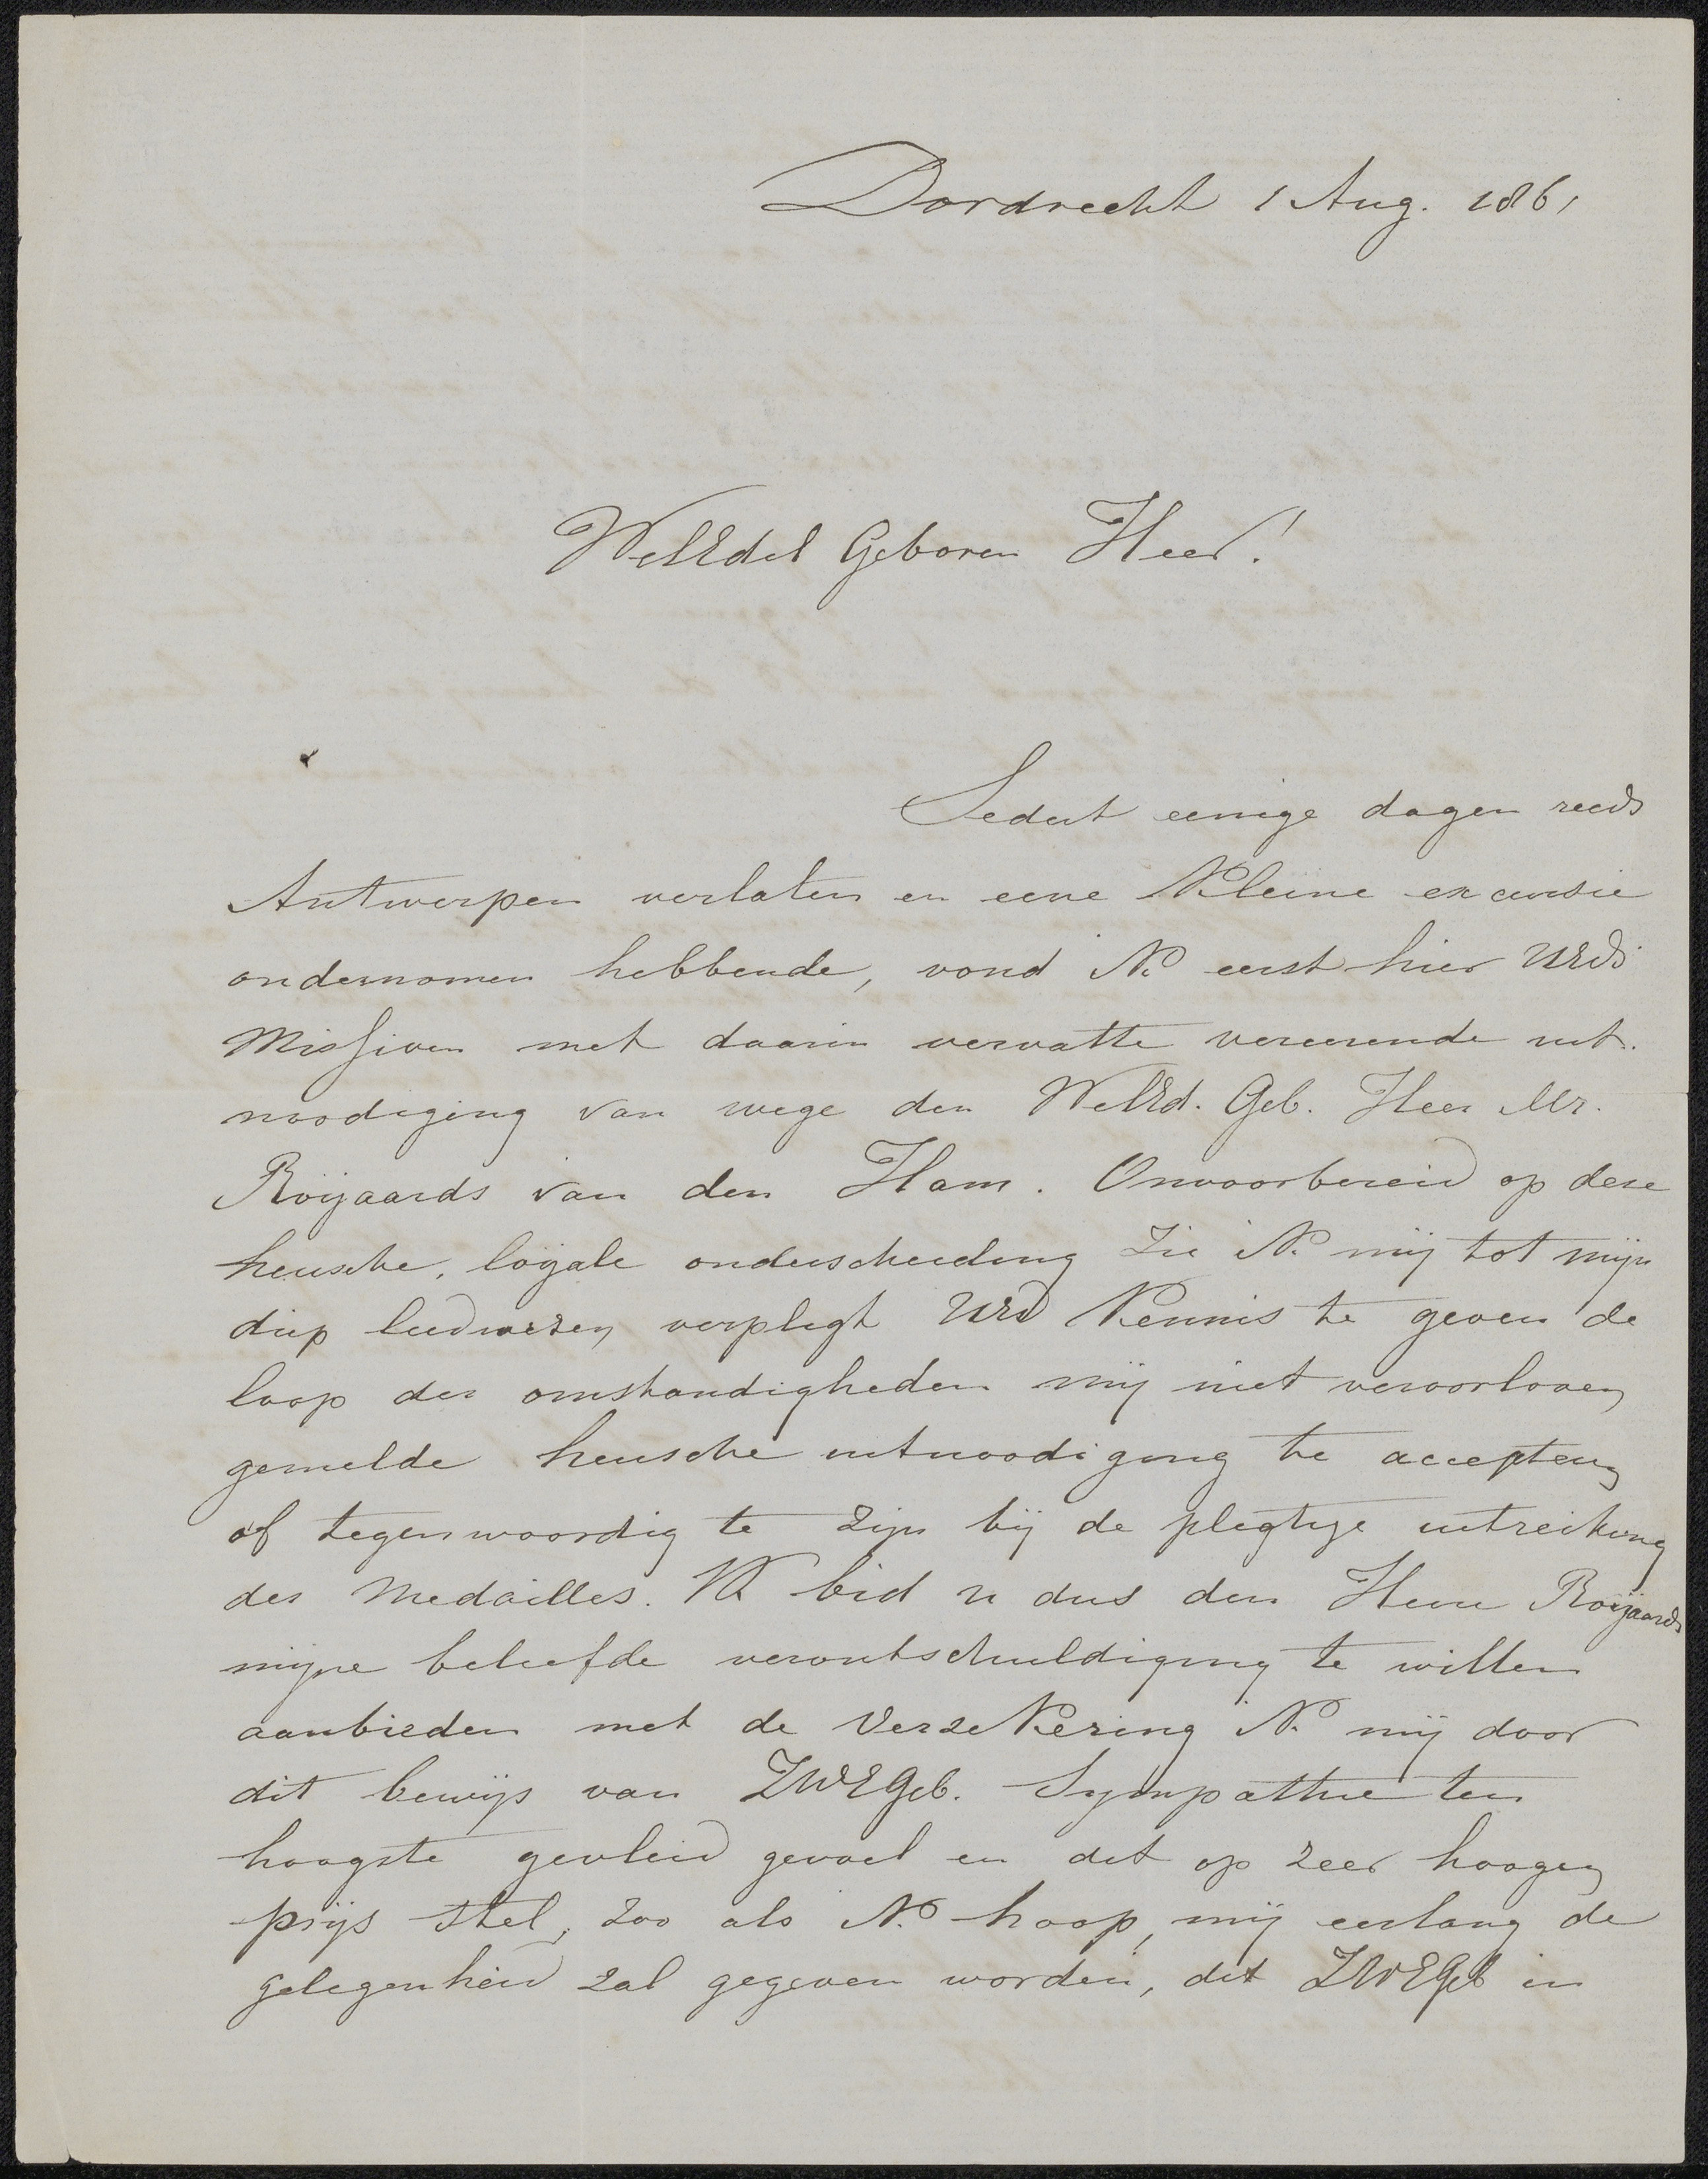 Dordrecht 1 Aug. 1861
WelEdel Geboren Heer!
Sedert eenige dagen reeds
Antwerpen verlaten en eene kleine excursie
ondernomen hebbende, vond ik eerst hier UEds
Missiven met daarin vervatte vereerende uit-
noodiging van wege den WelEd. Geb. Heer Mr.
Roijaards van den Ham. Onvoorbereid op deze
heusche, loyale onderscheiding zie ik mij tot mijn
diep leedwezen verpligt UEd kennis te geven de
loop der omstandigheden mij niet veroorloven
gemelde heusche uitnoodiging te accepteren
of tegenwoordig te zijn bij de plegtige uitreiking
der Medailles. Ik bid u dus den Heere Roijaards
mijne beleefde verontschuldiging te willen
aanbieden met de verzekering ik mij door
dit bewijs van ZWEGeb. Sympathie ten
hoogste gevleid gevoel en dit op zeer hoogen
prijs stel, zoo als ik hoop, mij eerlang de
gelegenheid zal gegeven worden, dit ZWEGeb in